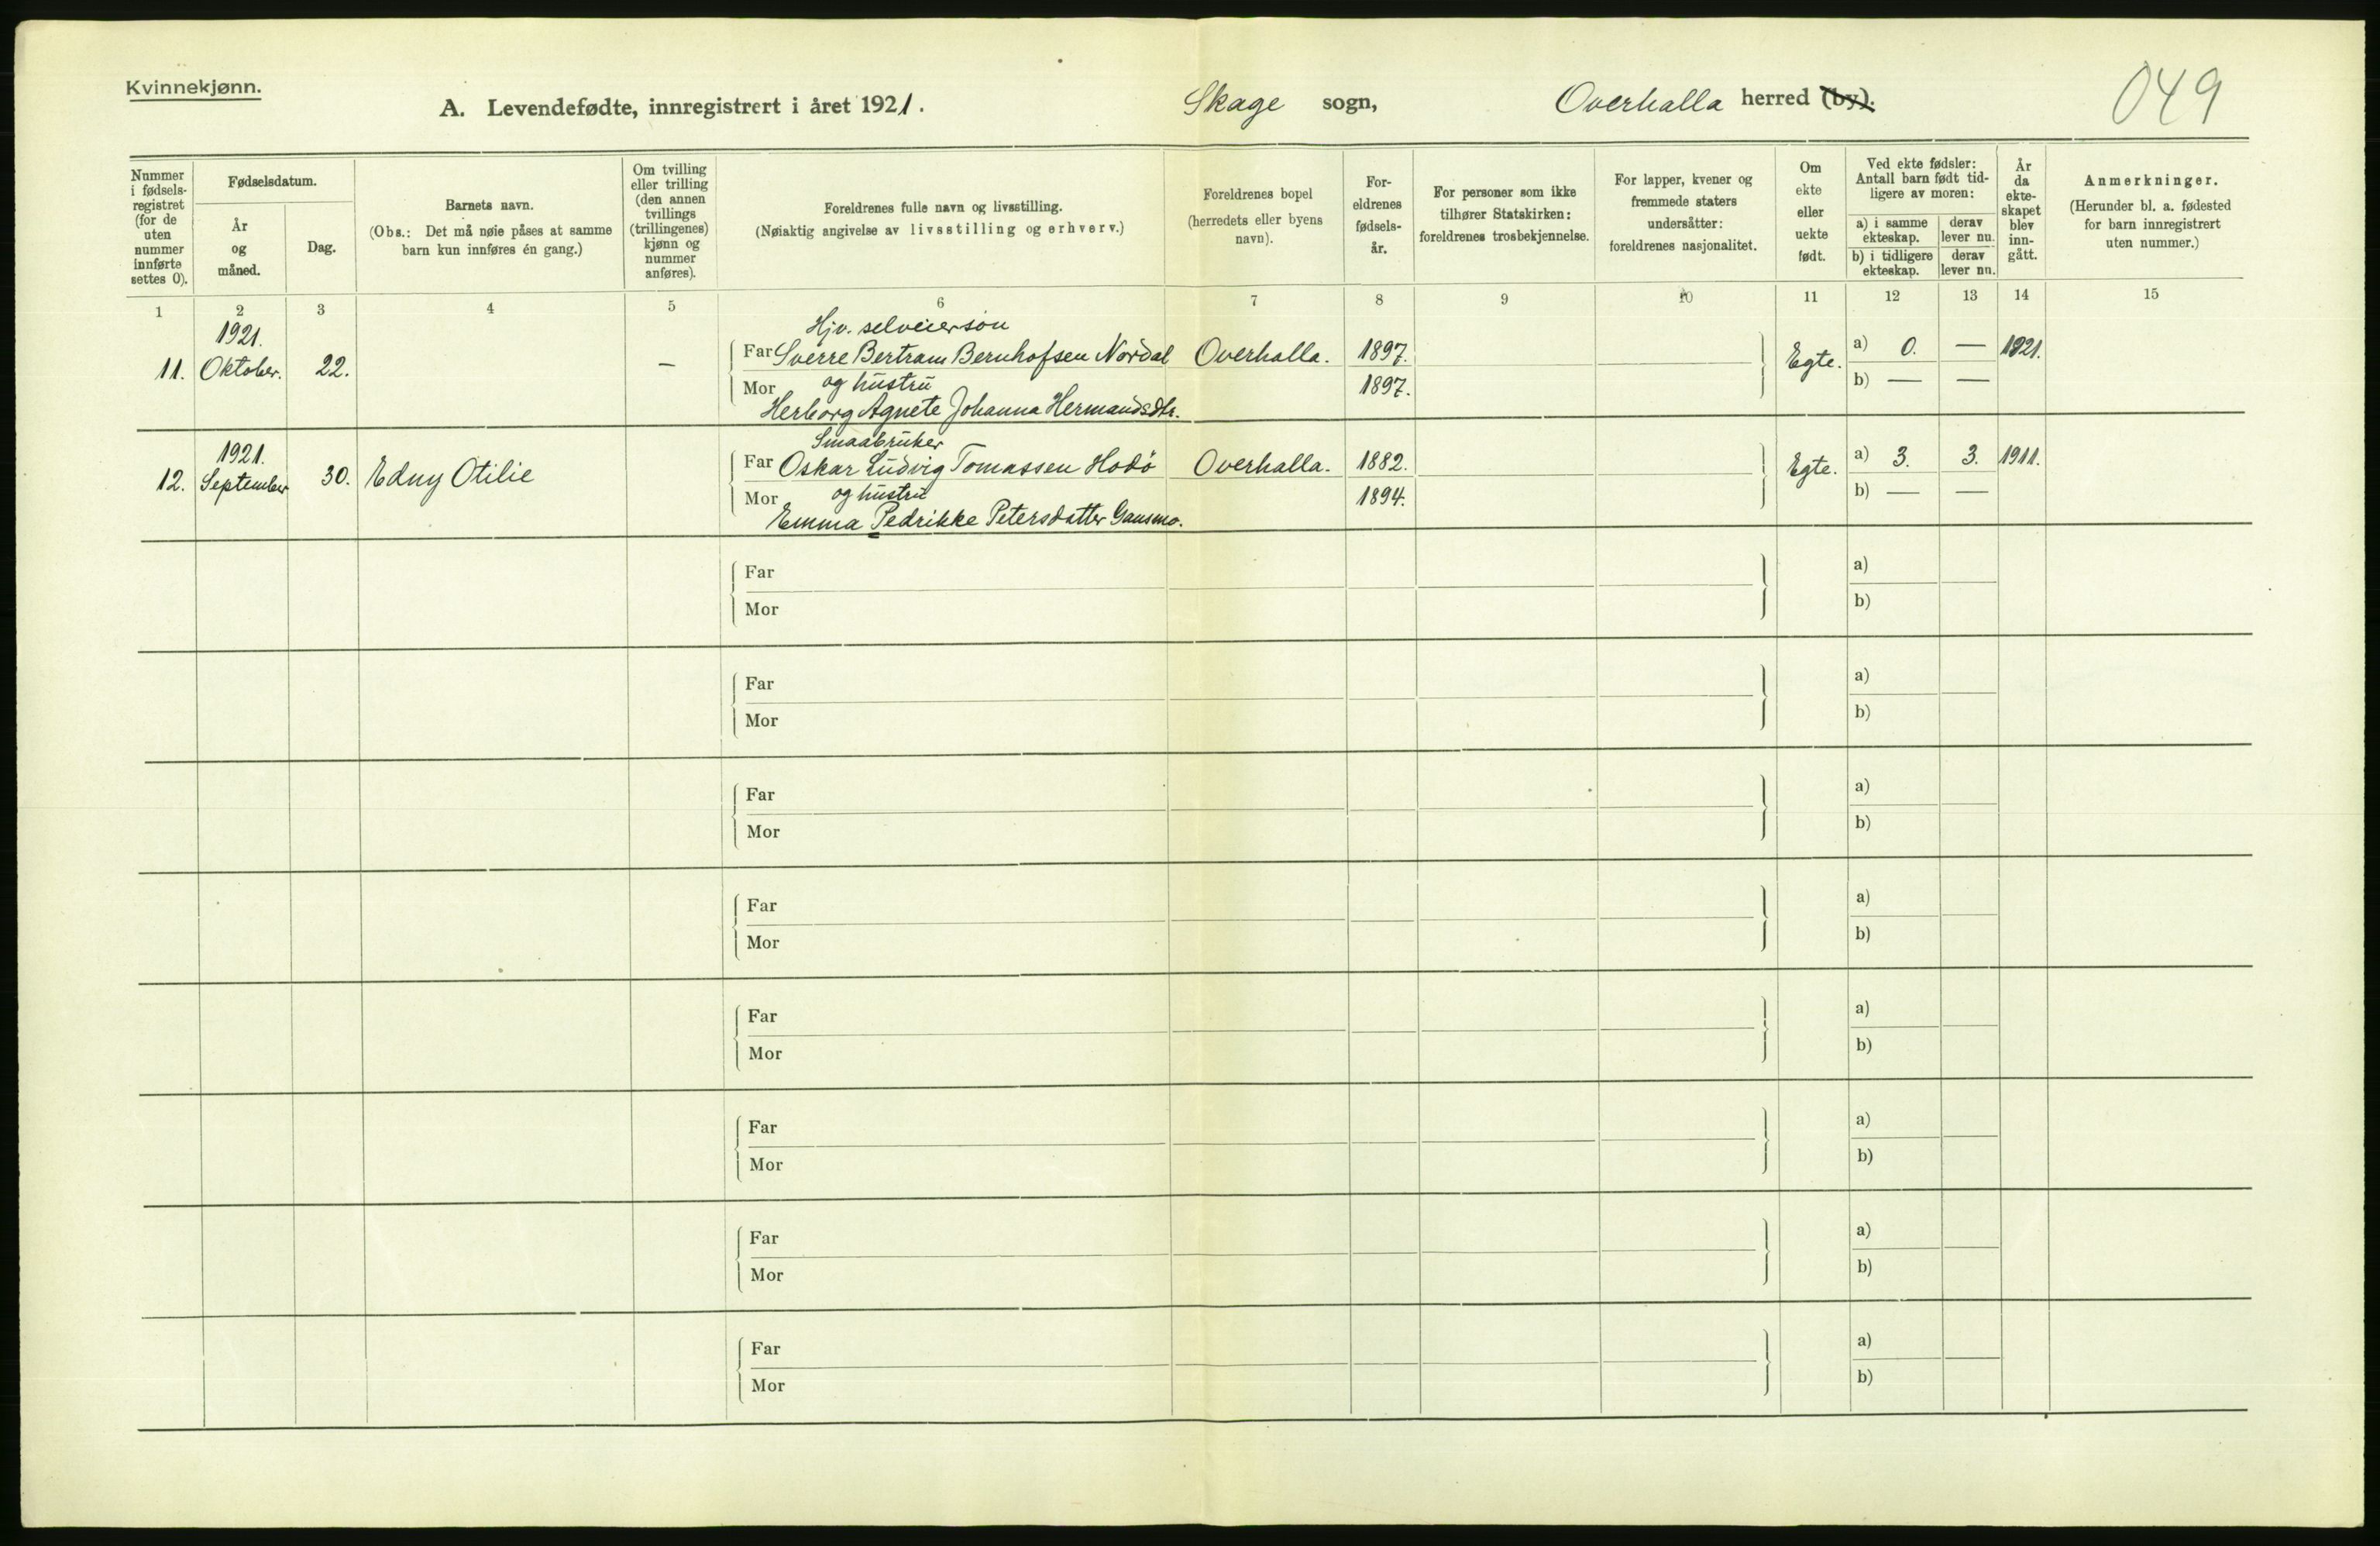 Kvinnekjønn.
A. Levendefødte, innregistrert i året 1921.
Skage sogn,
Overhalla herred (by).
049
Nummer i fødsels-registret (for de uten nummer innførte settes 0).
Fødselsdatum.
År og måned.
Dag.
Barnets navn.
(Obs.: Det må nøie påses at samme barn kun innføres én gang.)
Om tvilling eller trilling (den annen tvillings (trillingenes) kjønn og nummer anføres).
Foreldrenes fulle navn og livsstilling.
(Nøiaktig angivelse av livsstilling og erhverv.)
Foreldrenes bopel
(herredets eller byens navn).
For-eldrenes fødsels-år.
For personer som ikke tilhører Statskirken: foreldrenes trosbekjennelse.
For lapper, kvener og fremmede staters undersåtter: foreldrenes nasjonalitet.
Om ekte eller uekte født.
Ved ekte fødsler: Antall barn født tid-ligere av moren:
a) i samme ekteskap.
derav lever nu.
b) i tidligere ekteskap.
derav lever nu.
År da ekte-skapet blev inn-gått.
Anmerkninger.
(Herunder bl. a. fødested for barn innregistrert uten nummer.)
1 2 3 4 5 6 7 8 9 10 11 12 13 14 15
1921.
Hjv. selveiersøn
11. Oktober. 22. — Far Sverre Bertram Bernhofsen Nordal Overhalla. 1897. Egte. a) 0. — 1921.
Mor og hustru 1897. b) — —
Herborg Agnete Johanna Hermandsdtr.
1921.
Smaabruker
12. September 30. Edny Otilie Far Oskar Ludvig Tomassen Hodö Overhalla. 1882. Egte. a) 3. 3. 1911.
Mor og hustru 1894. b) — —
Emma Pedrikke Petersdatter Gansmo.
Far a)
Mor b)
Far a)
Mor b)
Far a)
Mor b)
Far a)
Mor b)
Far a)
Mor b)
Far a)
Mor b)
Far a)
Mor b)
Far a)
Mor b)